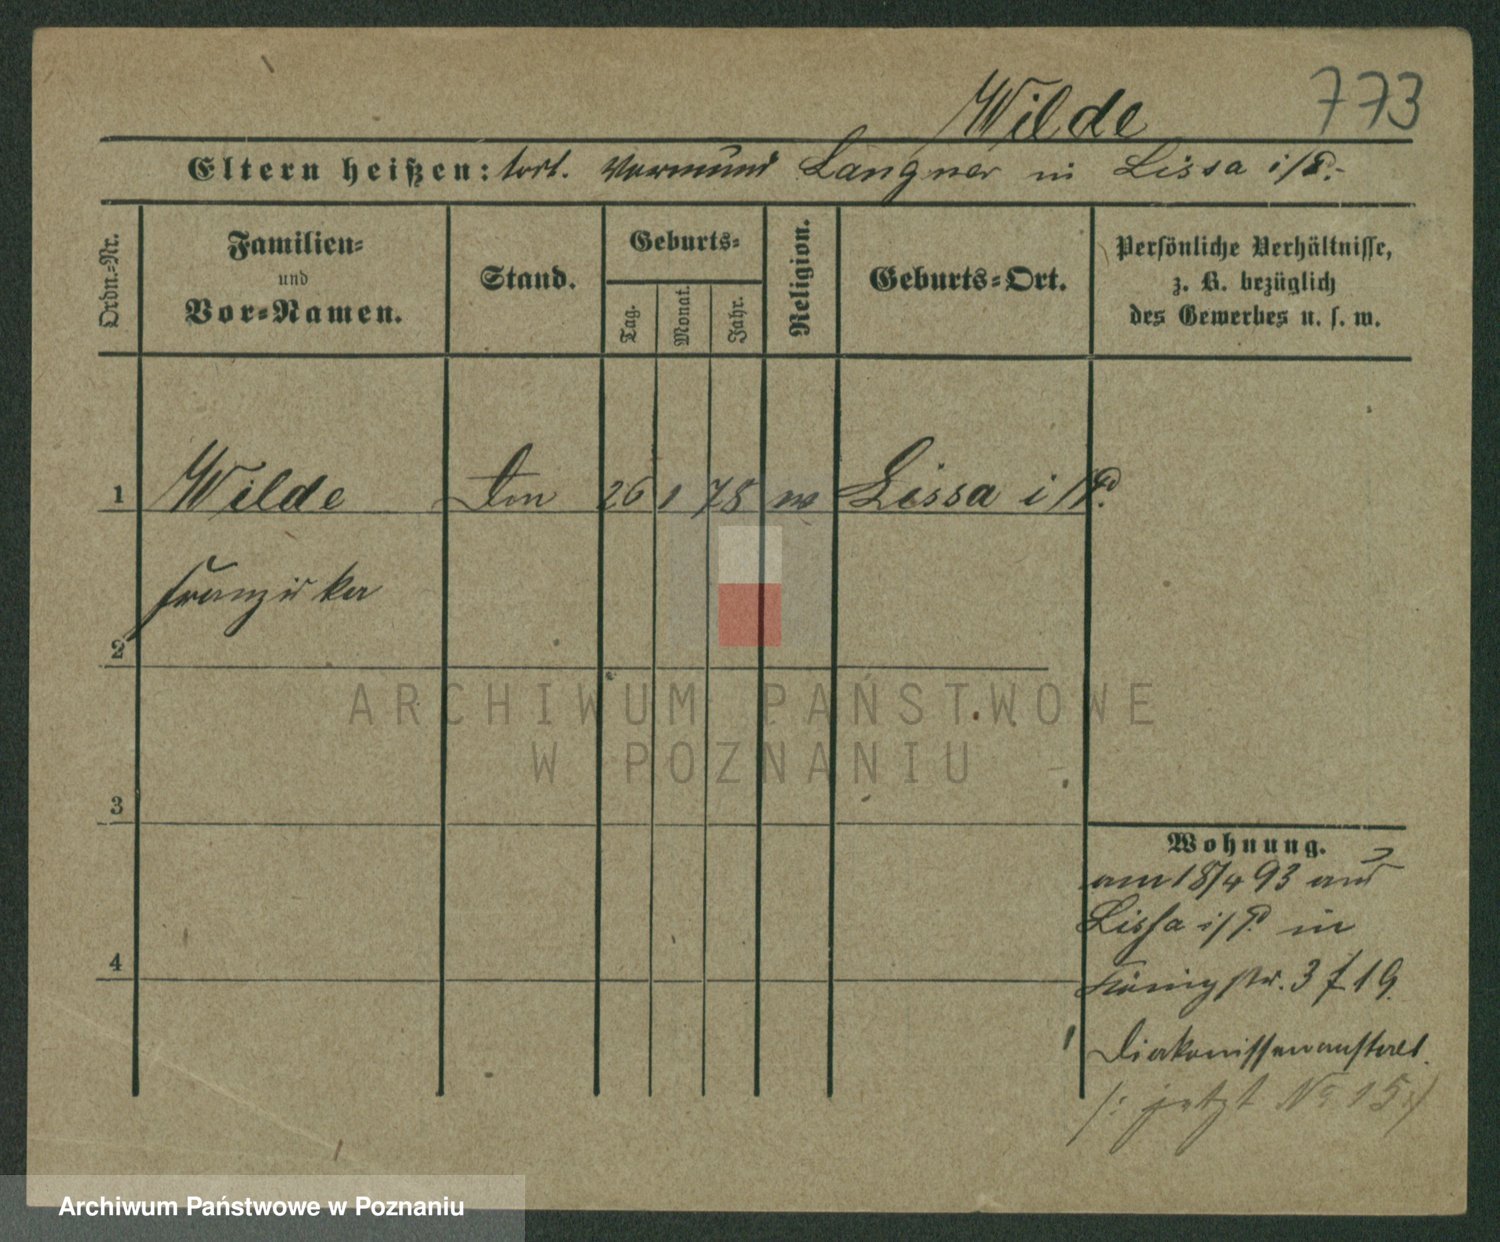 Wilde 773
Eltern heißen: Vormund Langner in Lissa i/P.
Ordn.-Nr.
Familien-
und
Vor-Namen.
Stand.
Geburts-
Tag.
Monat.
Jahr.
Religion.
Geburts-Ort.
Persönliche Verhältnisse,
z. B. bezüglich
des Gewerbes u. s. w.
1 Wilde 26 1 78 Lissa i/P.
Franziska
2
3
4
Wohnung.
am 18/4 93 aus
Lissa i/P. in
Königstr. 3 / 19.
Diakonissenanstalt.
/: jetzt No 15 :/
ARCHIWUM PAŃSTWOWE
W POZNANIU
Archiwum Państwowe w Poznaniu